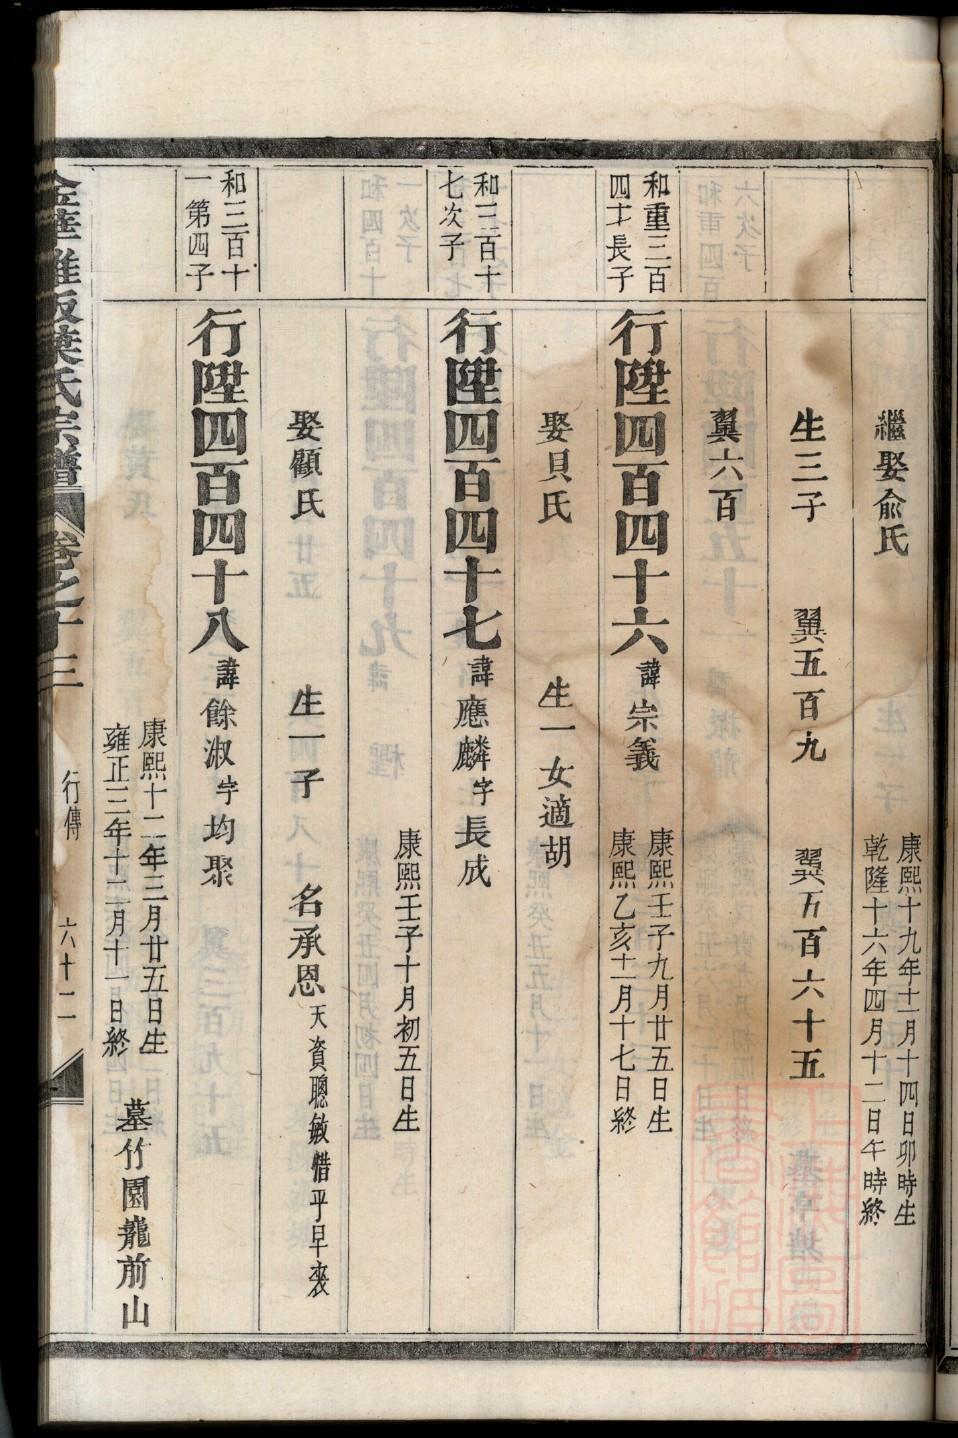 繼娶俞氏
康熙十九年十一月十四日卯時生
乾隆十六年四月十二日午時終
生三子 翼五百九 翼五百六十五
翼六百
和重三百
四十長子
行陞四百四十六 諱宗義
康熙壬子九月廿五日生
康熙乙亥十二月十七日終
娶貝氏 生一女適胡
和三百十
七次子
行陞四百四十七 諱應麟 字長成
康熙壬子十月初五日生
娶顧氏 生一子 名承恩 天資聰敏惜乎早喪
和三百十
一第四子
行陞四百四十八 諱餘淑 字均聚
康熙十二年三月廿五日生
雍正三年十一月十一日終
墓竹園巃前山
金華 氏宗譜 卷之十三 行傳 六十二